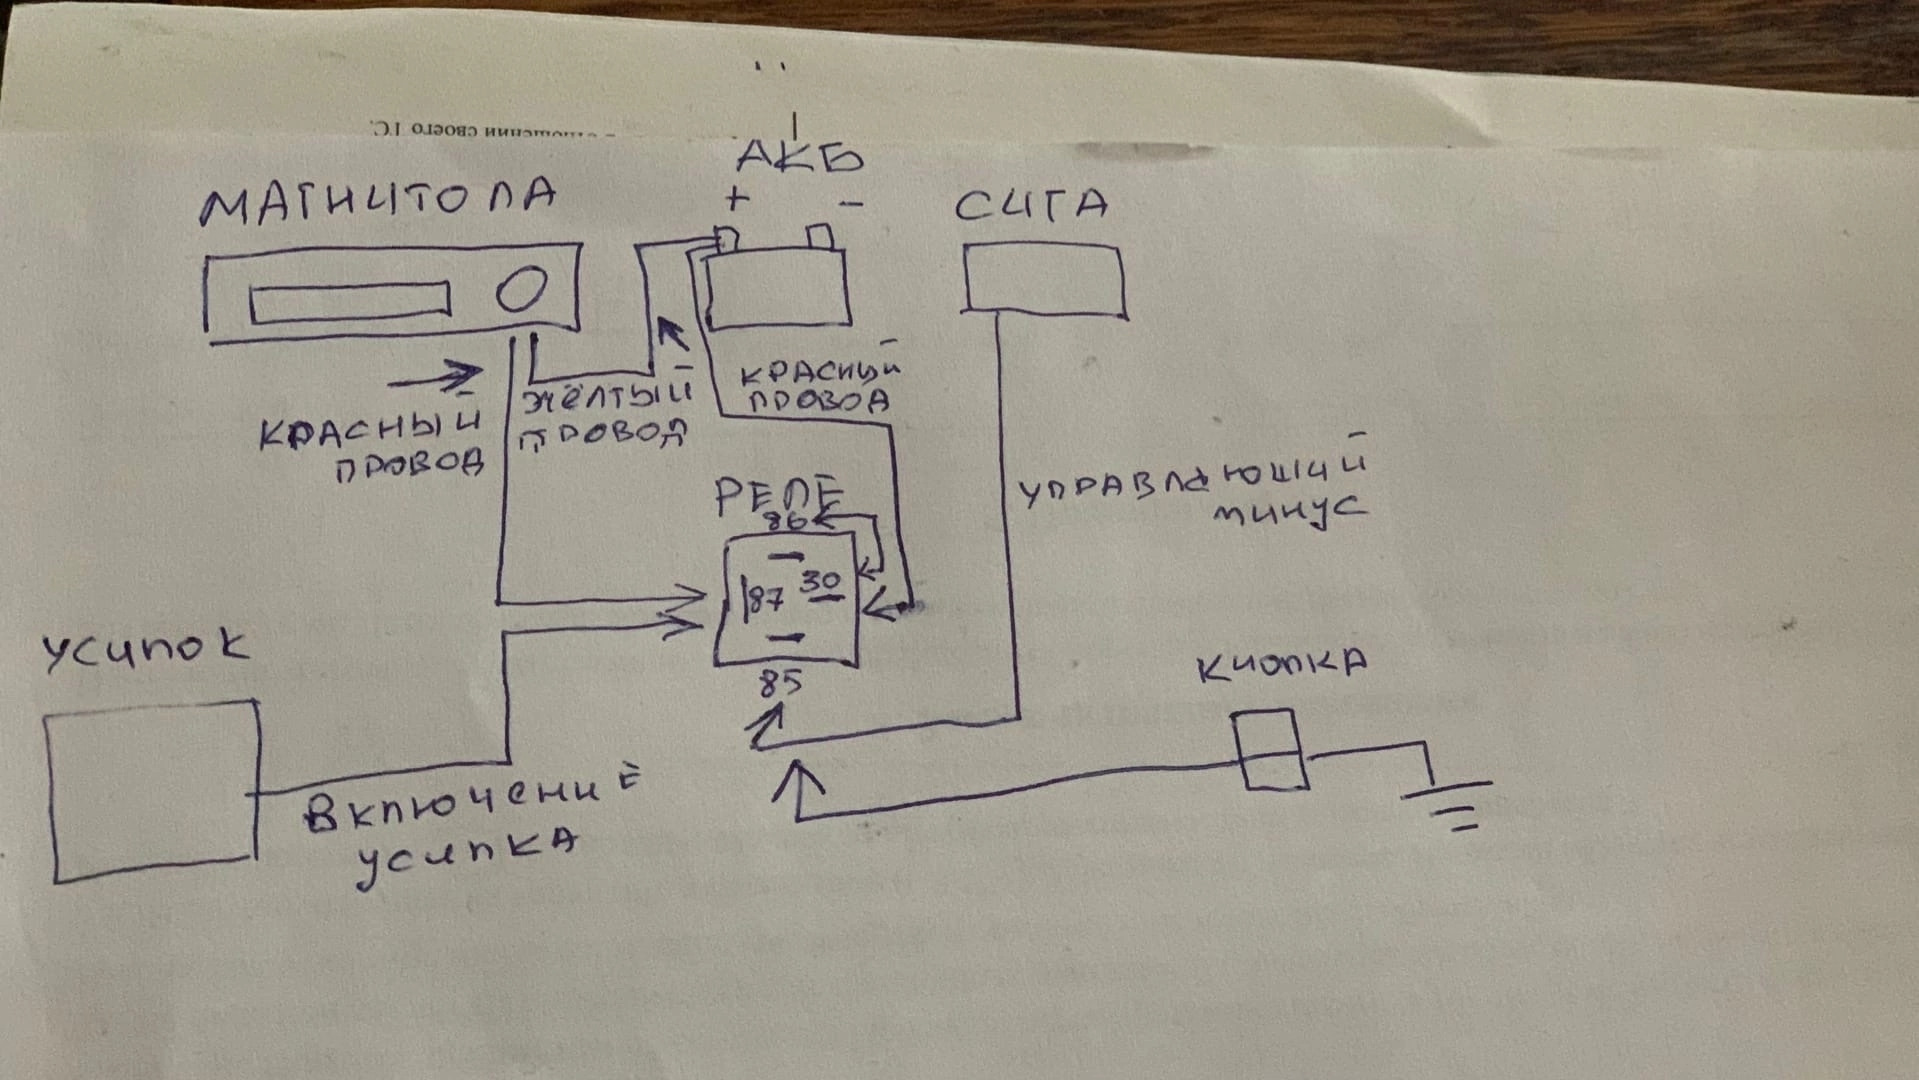 отношении своего ТС.
АКБ
+ −
МАГНИТОЛА
СИГА
КРАСНЫЙ
ПРОВОД
ЖЁЛТЫЙ
ПРОВОД
КРАСНЫЙ
ПРОВОД
УПРАВЛЯЮЩИЙ
МИНУС
РЕЛЕ
86
87 30
85
УСИЛОК
КНОПКА
ВКЛЮЧЕНИЕ
УСИЛКА